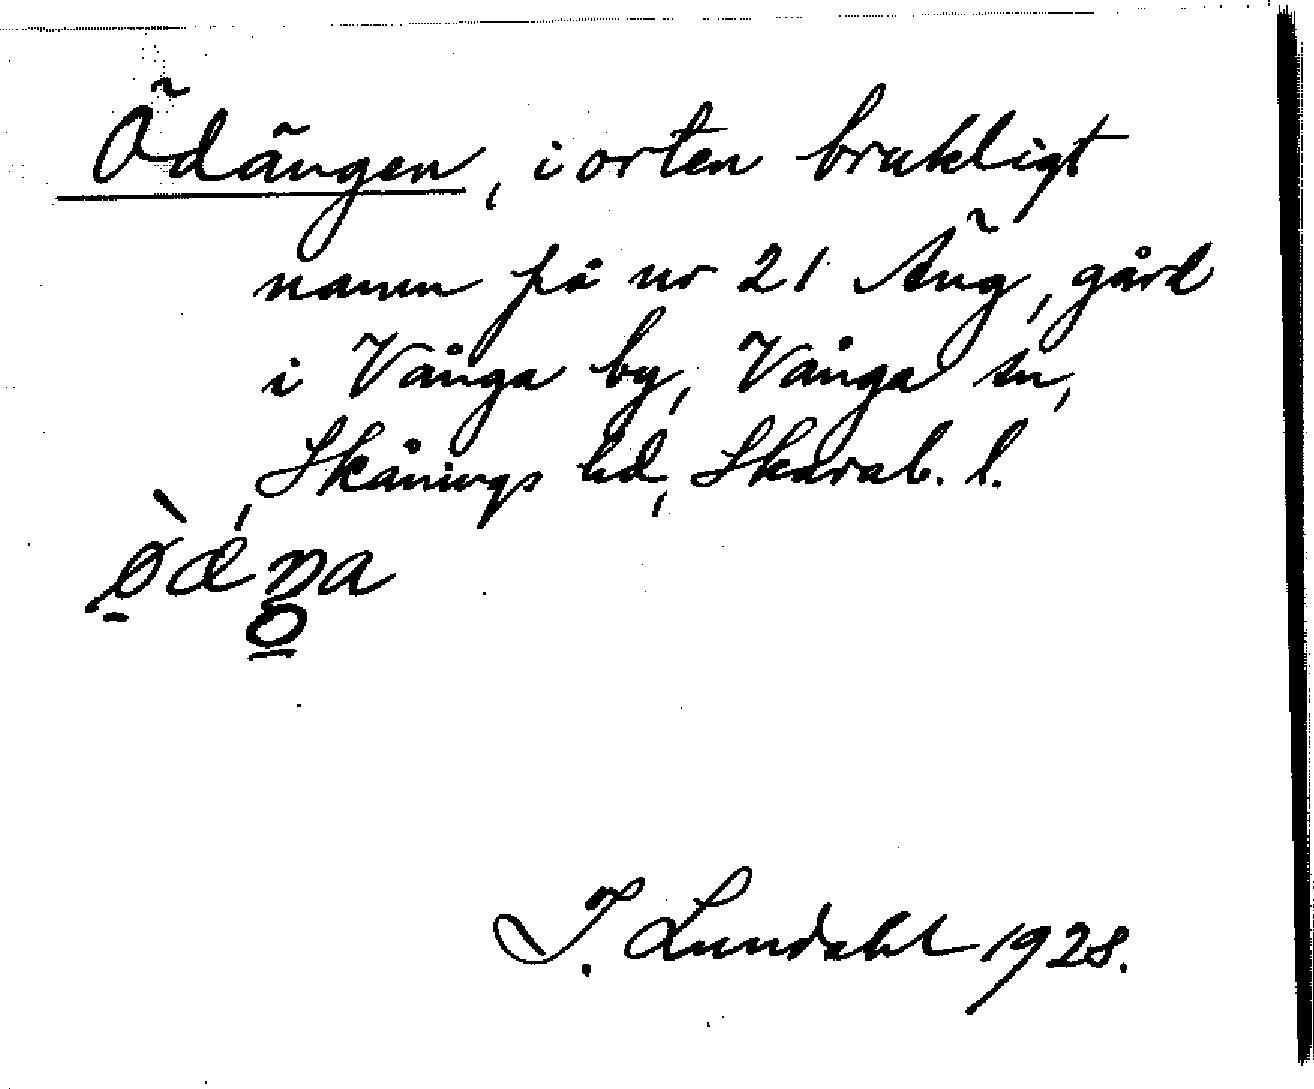 Ödängen, i orten brukligt
namn på nr 21 Äng, gård
i Vånga by, Vånga sn,
Skånings hd, Skarab. l.
J. Lundahl 1928.